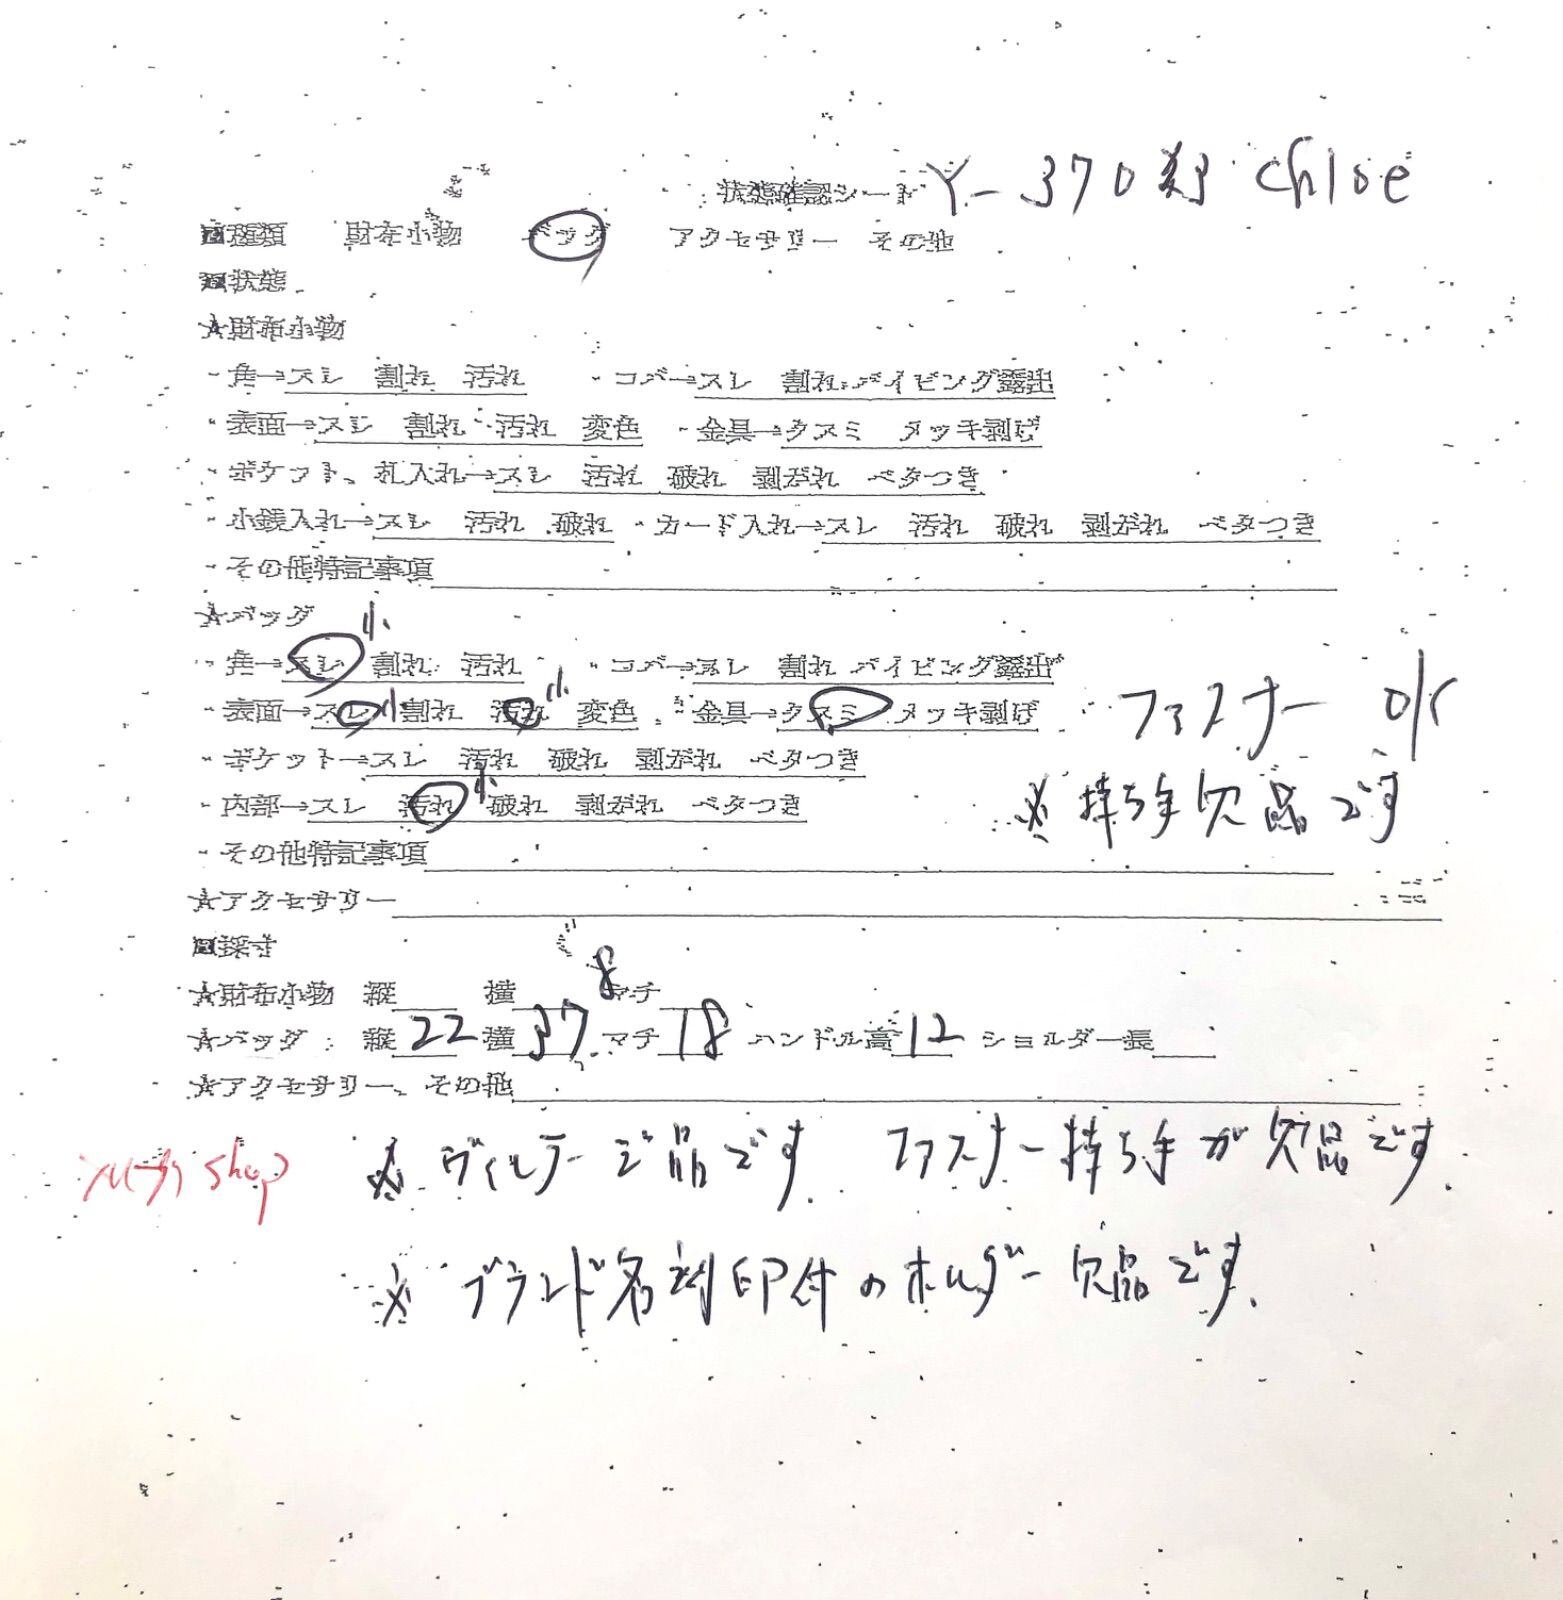 状態確認シート Y-370 Chloe
■種類 財布小物 バッグ アクセサリー その他
■状態
☆財布小物
・角→スレ 割れ 汚れ ・コバ→スレ 割れ パイピング露出
・表面→スレ 割れ 汚れ 変色 ・金具→クスミ メッキ剥げ
・ポケット、札入れ→スレ 汚れ 破れ 剥がれ ベタつき
・小銭入れ→スレ 汚れ 破れ ・カード入れ→スレ 汚れ 破れ 剥がれ ベタつき
・その他特記事項
☆バッグ
・角→スレ小 割れ 汚れ ・コバ→スレ 割れ パイピング露出
・表面→スレ小 割れ 汚れ小 変色 ・金具→クスミ メッキ剥げ ファスナー OK
・ポケット→スレ 汚れ 破れ 剥がれ ベタつき
・内部→スレ 汚れ小 破れ 剥がれ ベタつき ※持ち手欠品です
・その他特記事項
☆アクセサリー
■採寸
☆財布小物 縦 横 8 マチ
☆バッグ 縦22 横37 マチ18 ハンドル高12 ショルダー長
☆アクセサリー、その他
shop ※ヴィンテージ品です. ファスナー持ち手が欠品です.
※ブランド名刻印付のホルダー欠品です.